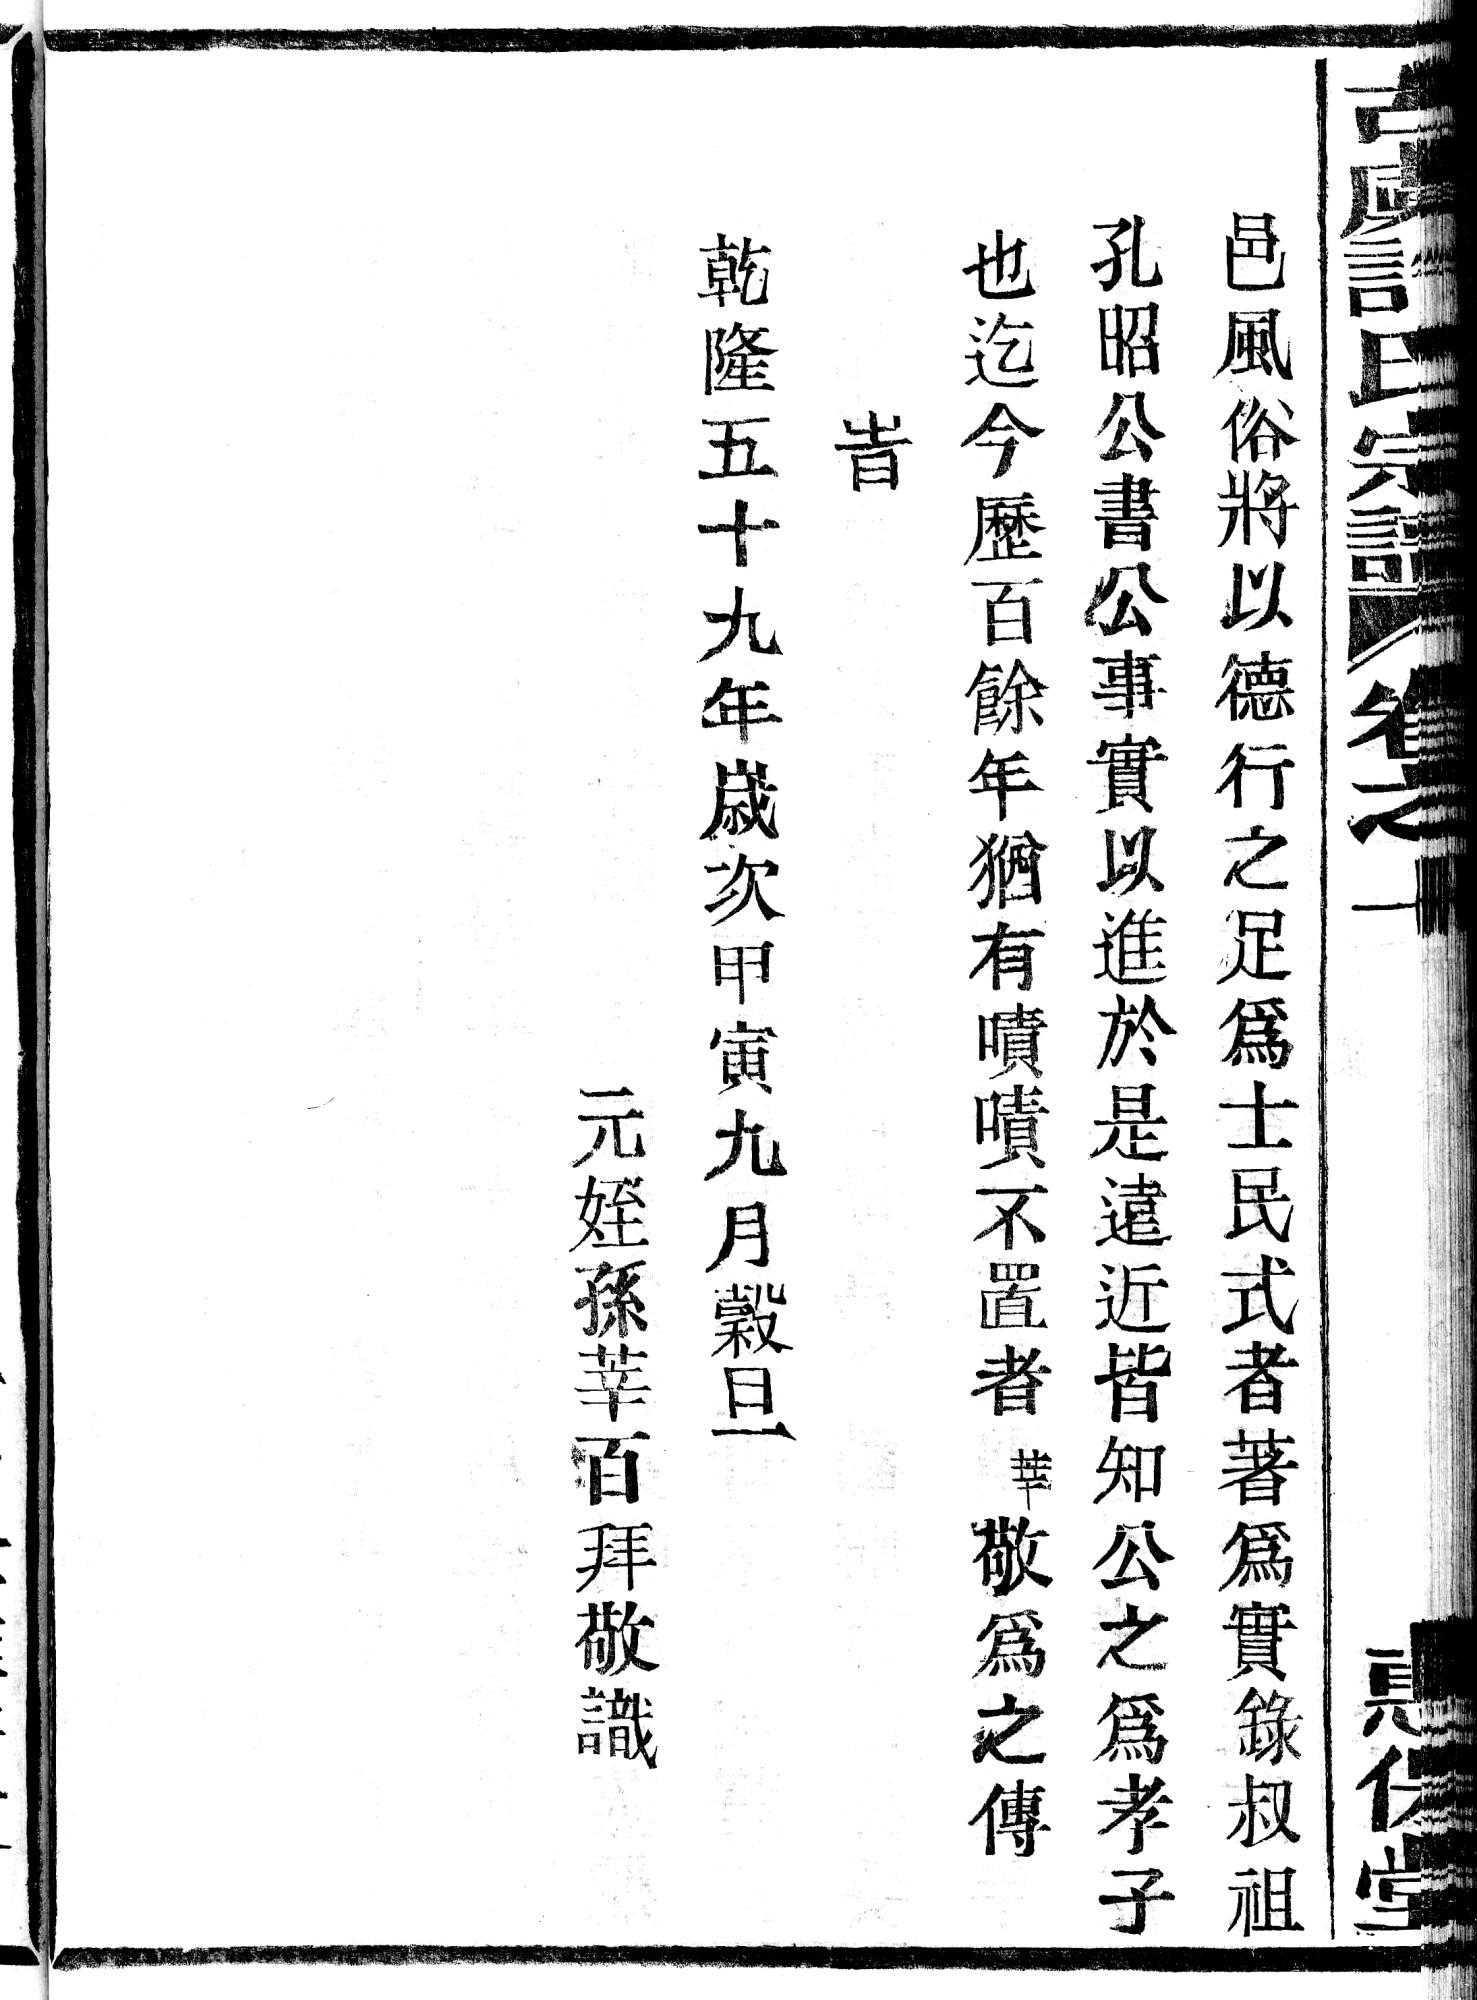 古虞許氏宗譜 卷之一 惠保堂
邑風俗將以德行之足爲士民式者著爲實錄叔祖
孔昭公書公事實以進於是遠近皆知公之爲孝子
也迄今歷百餘年猶有嘖嘖不置者莘敬爲之傳
旹
乾隆五十九年歲次甲寅九月穀旦
元姪孫莘百拜敬識